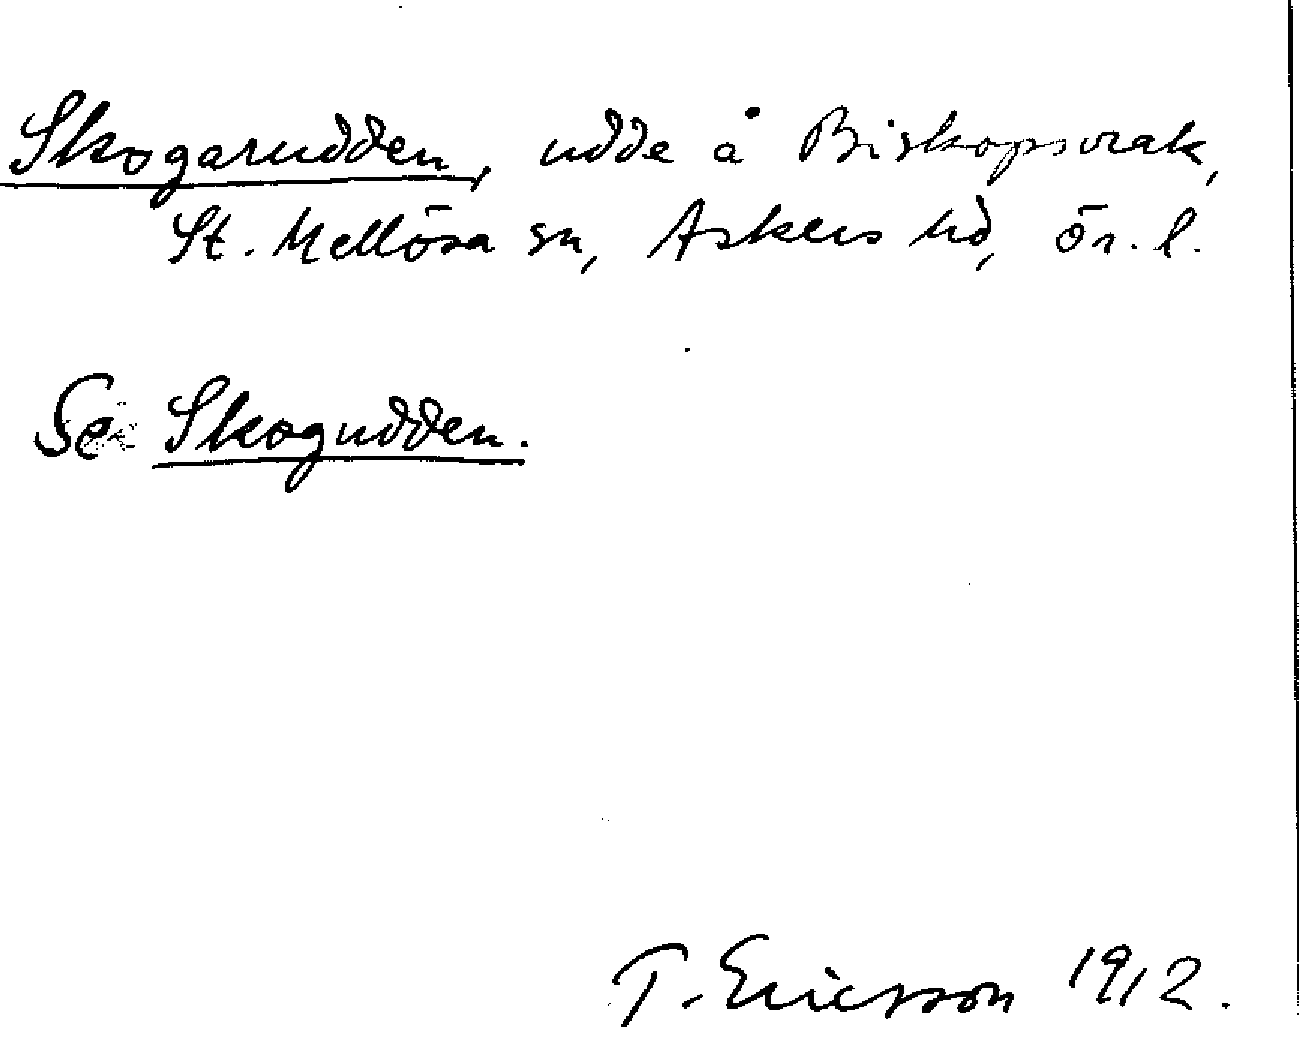 Skogarudden, udde å Biskopsvrak,
St. Mellösa sn, Askers hd, Ör. l.
Se Skogudden.
T. Ericsson 1912.